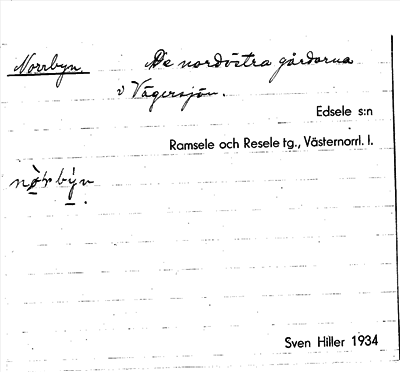 Norrbyn. De nordöstra gårdarna
i Vägersjön.
Edsele s:n
Ramsele och Resele tg., Västernorrl. l.
nòrbýn
Sven Hiller 1934